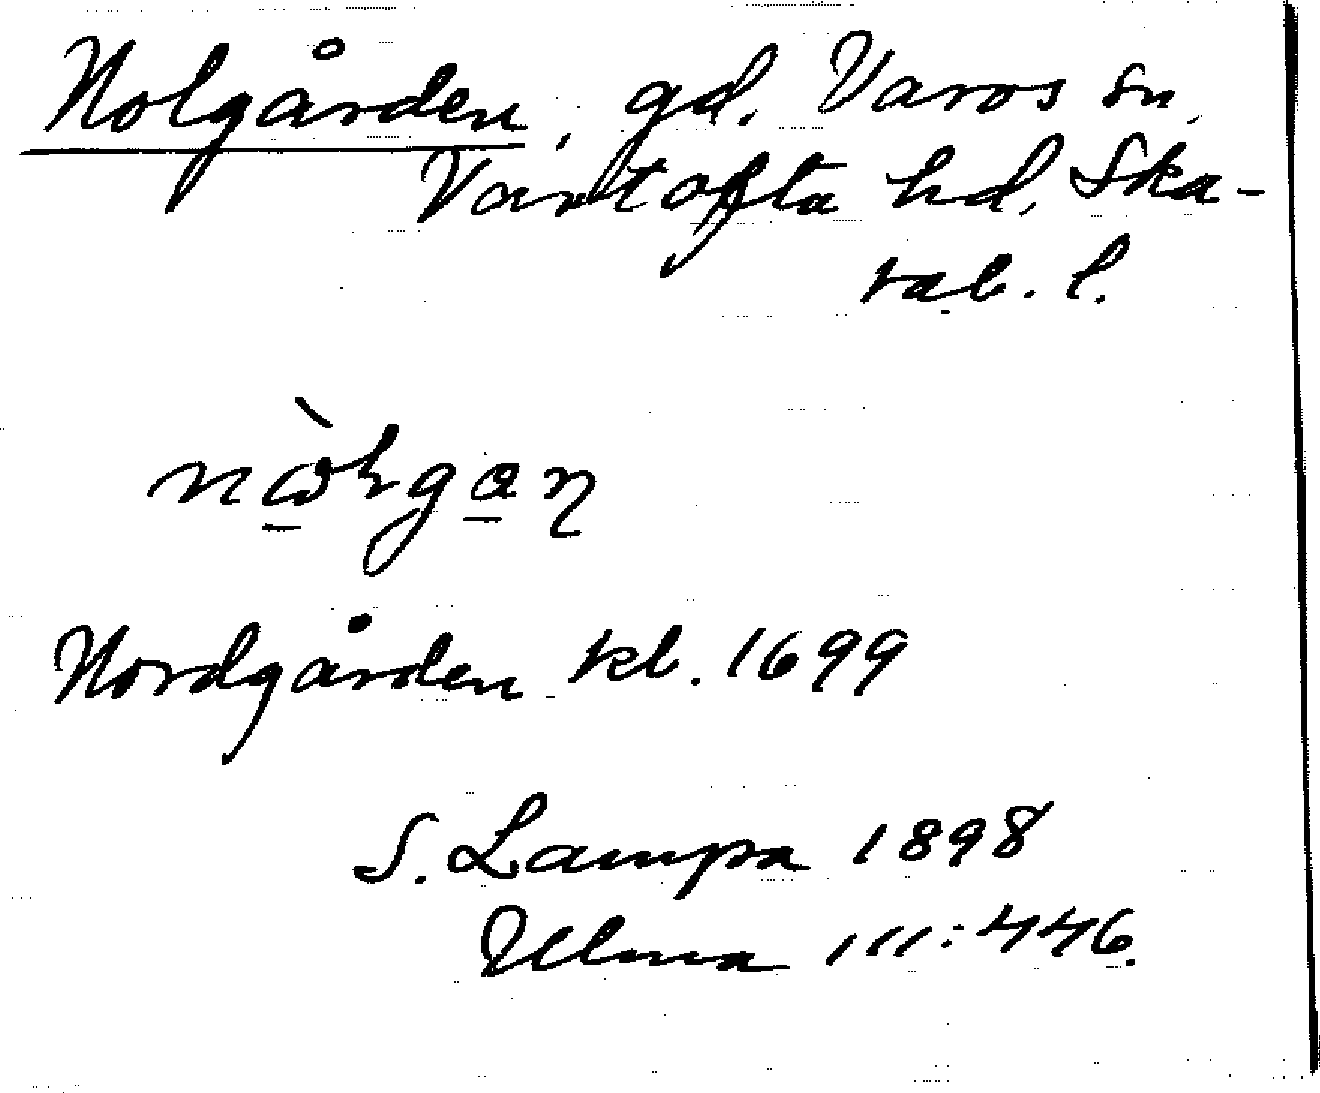 Nolgården, gd. Varvs sn,
Vartofta hd, Ska-
rab. l.
Nordgården kl. 1699
S. Lampa 1898
Ulma 111:446.